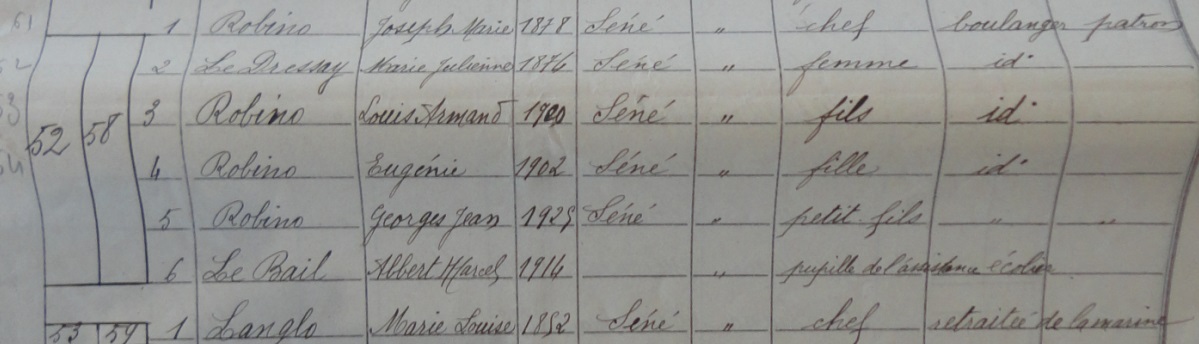 1 Robino Joseph Marie 1878 Séné " chef boulanger patron
2 Le Dressay Marie Julienne 1876 Séné " femme id.
52 58 3 Robino Louis Armand 1900 Séné " fils id.
4 Robino Eugénie 1902 Séné " fille id.
5 Robino Georges Jean 1925 Séné " petit-fils " "
6 Le Bail Albert Marcel 1914 " pupille de l'assistance écolier
53 59 1 Langlo Marie Louise 1852 Séné " chef retraitée de la marine